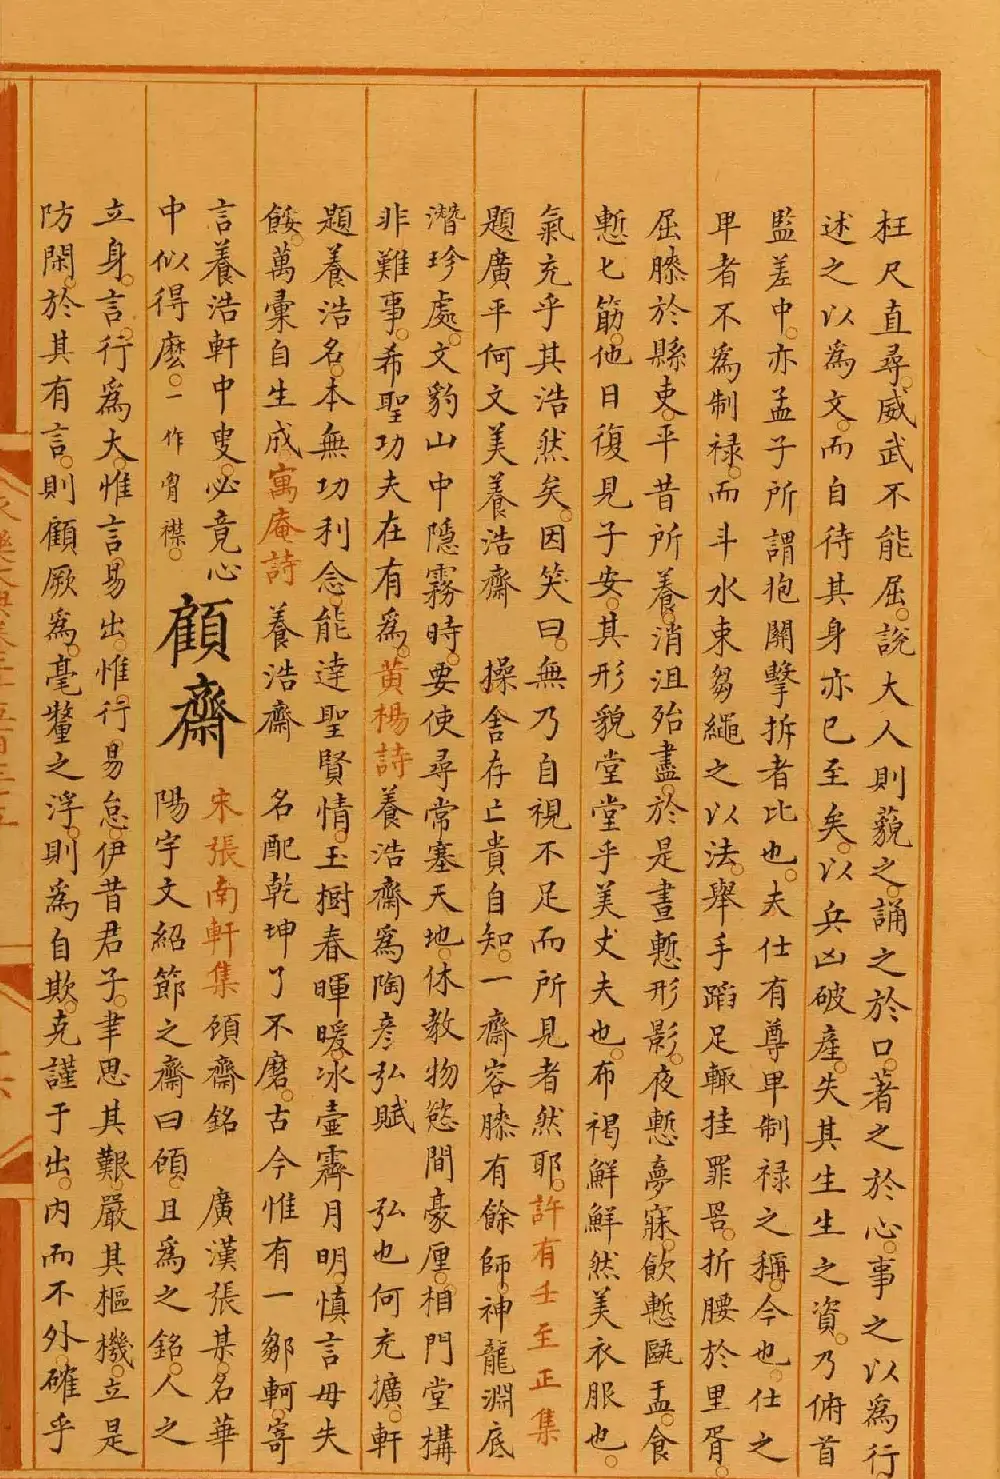 枉尺直尋威武不能屈說大人則藐之誦之於口著之於心事之以為行
述之以為文而自待其身亦已至矣以兵凶破產失其生生之資乃俯首
監差中亦孟子所謂抱關擊柝者比也夫仕有尊卑制祿之稱今也仕之
卑者不為制祿而斗水束芻繩之以法舉手蹈足輙挂罪罟折腰於里胥
屈膝於縣吏平昔所養消沮殆盡於是晝慙形影夜慙夢寐飲慙甌盂食
慙匕筯他日復見子安其形貌堂堂乎美丈夫也布褐鮮鮮然美衣服也
氣充乎其浩然矣因笑曰無乃自視不足而所見者然耶許有壬至正集
題廣平何文美養浩齋 操舍存亡貴自知一齋容膝有餘師神龍淵底
潛珍處文豹山中隱霧時要使尋常塞天地休教物慾間豪厘相門堂構
非難事希聖功夫在有為黄楊詩養浩齋為陶彥弘賦 弘也何充擴軒
題養浩名本無功利念能達聖賢情玉樹春暉暖冰壺霽月明慎言毋失
餒萬彙自生成寓庵詩 養浩齋 名配乾坤了不磨古今惟有一鄒軻寄
言養浩軒中叟必竟心
中似得麽一作胷襟
顧齋
宋張南軒集顧齋銘 廣漢張某名華
陽宇文紹節之齋曰顧且為之銘人之
立身言行為大惟言易出惟行易怠伊昔君子聿思其艱嚴其樞機立是
防閑於其有言則顧厥為毫釐之浮則為自欺克謹于出內而不外確乎